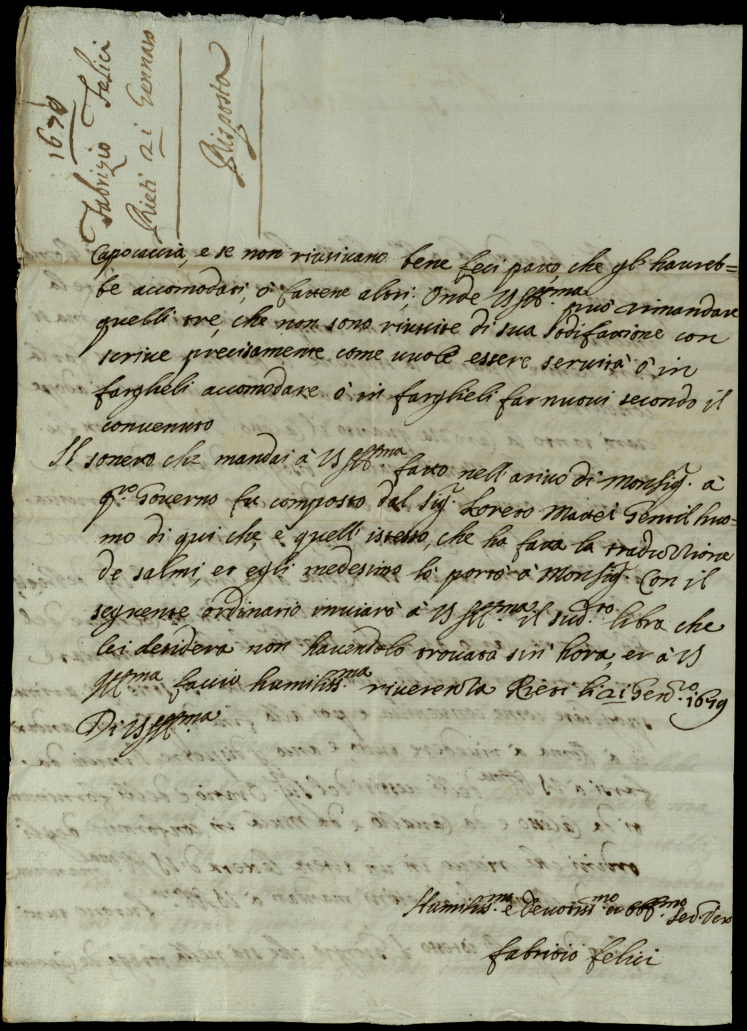 1679
Fabrizio Felici
Rieti 21 Gennaro
Risposta
Capocaccia, e se non riusivano bene feci patto, che gl' haureb=
be accomodati, ò fattene altri; Onde VS Ill.ma può rimandare
quelli tre, che non sono riusciti di sua sodisfattione con
scrive precisamente come vuole essere servità ò in
fargheli accomodare ò in fargheli far nuovi secondo il
convenuto
Il sonetto che mandai à VS Ill.ma fatto nell' arivo di Monsig.r à
q.sto Governo fu composto dal Sig.r Loreto Mattei Gentilhuo=
mo di qui che, è quell' istesso, che ha fatta la traduzzione
de salmi, et egli medesimo lo portò à Monsig.r Con il
seguente ordinario inviarò à VS Ill.ma il sud.tto libro che
lei desidera non havendolo trovato sin' hora, et à VS
Ill.ma faccio humiliss.ma riverenza Rieti li 21 Gen.ro 1679
Di VS Ill.ma
Humiliss.mo e Devotiss.mo et obb.mo Ser.re
Fabrizio Felici